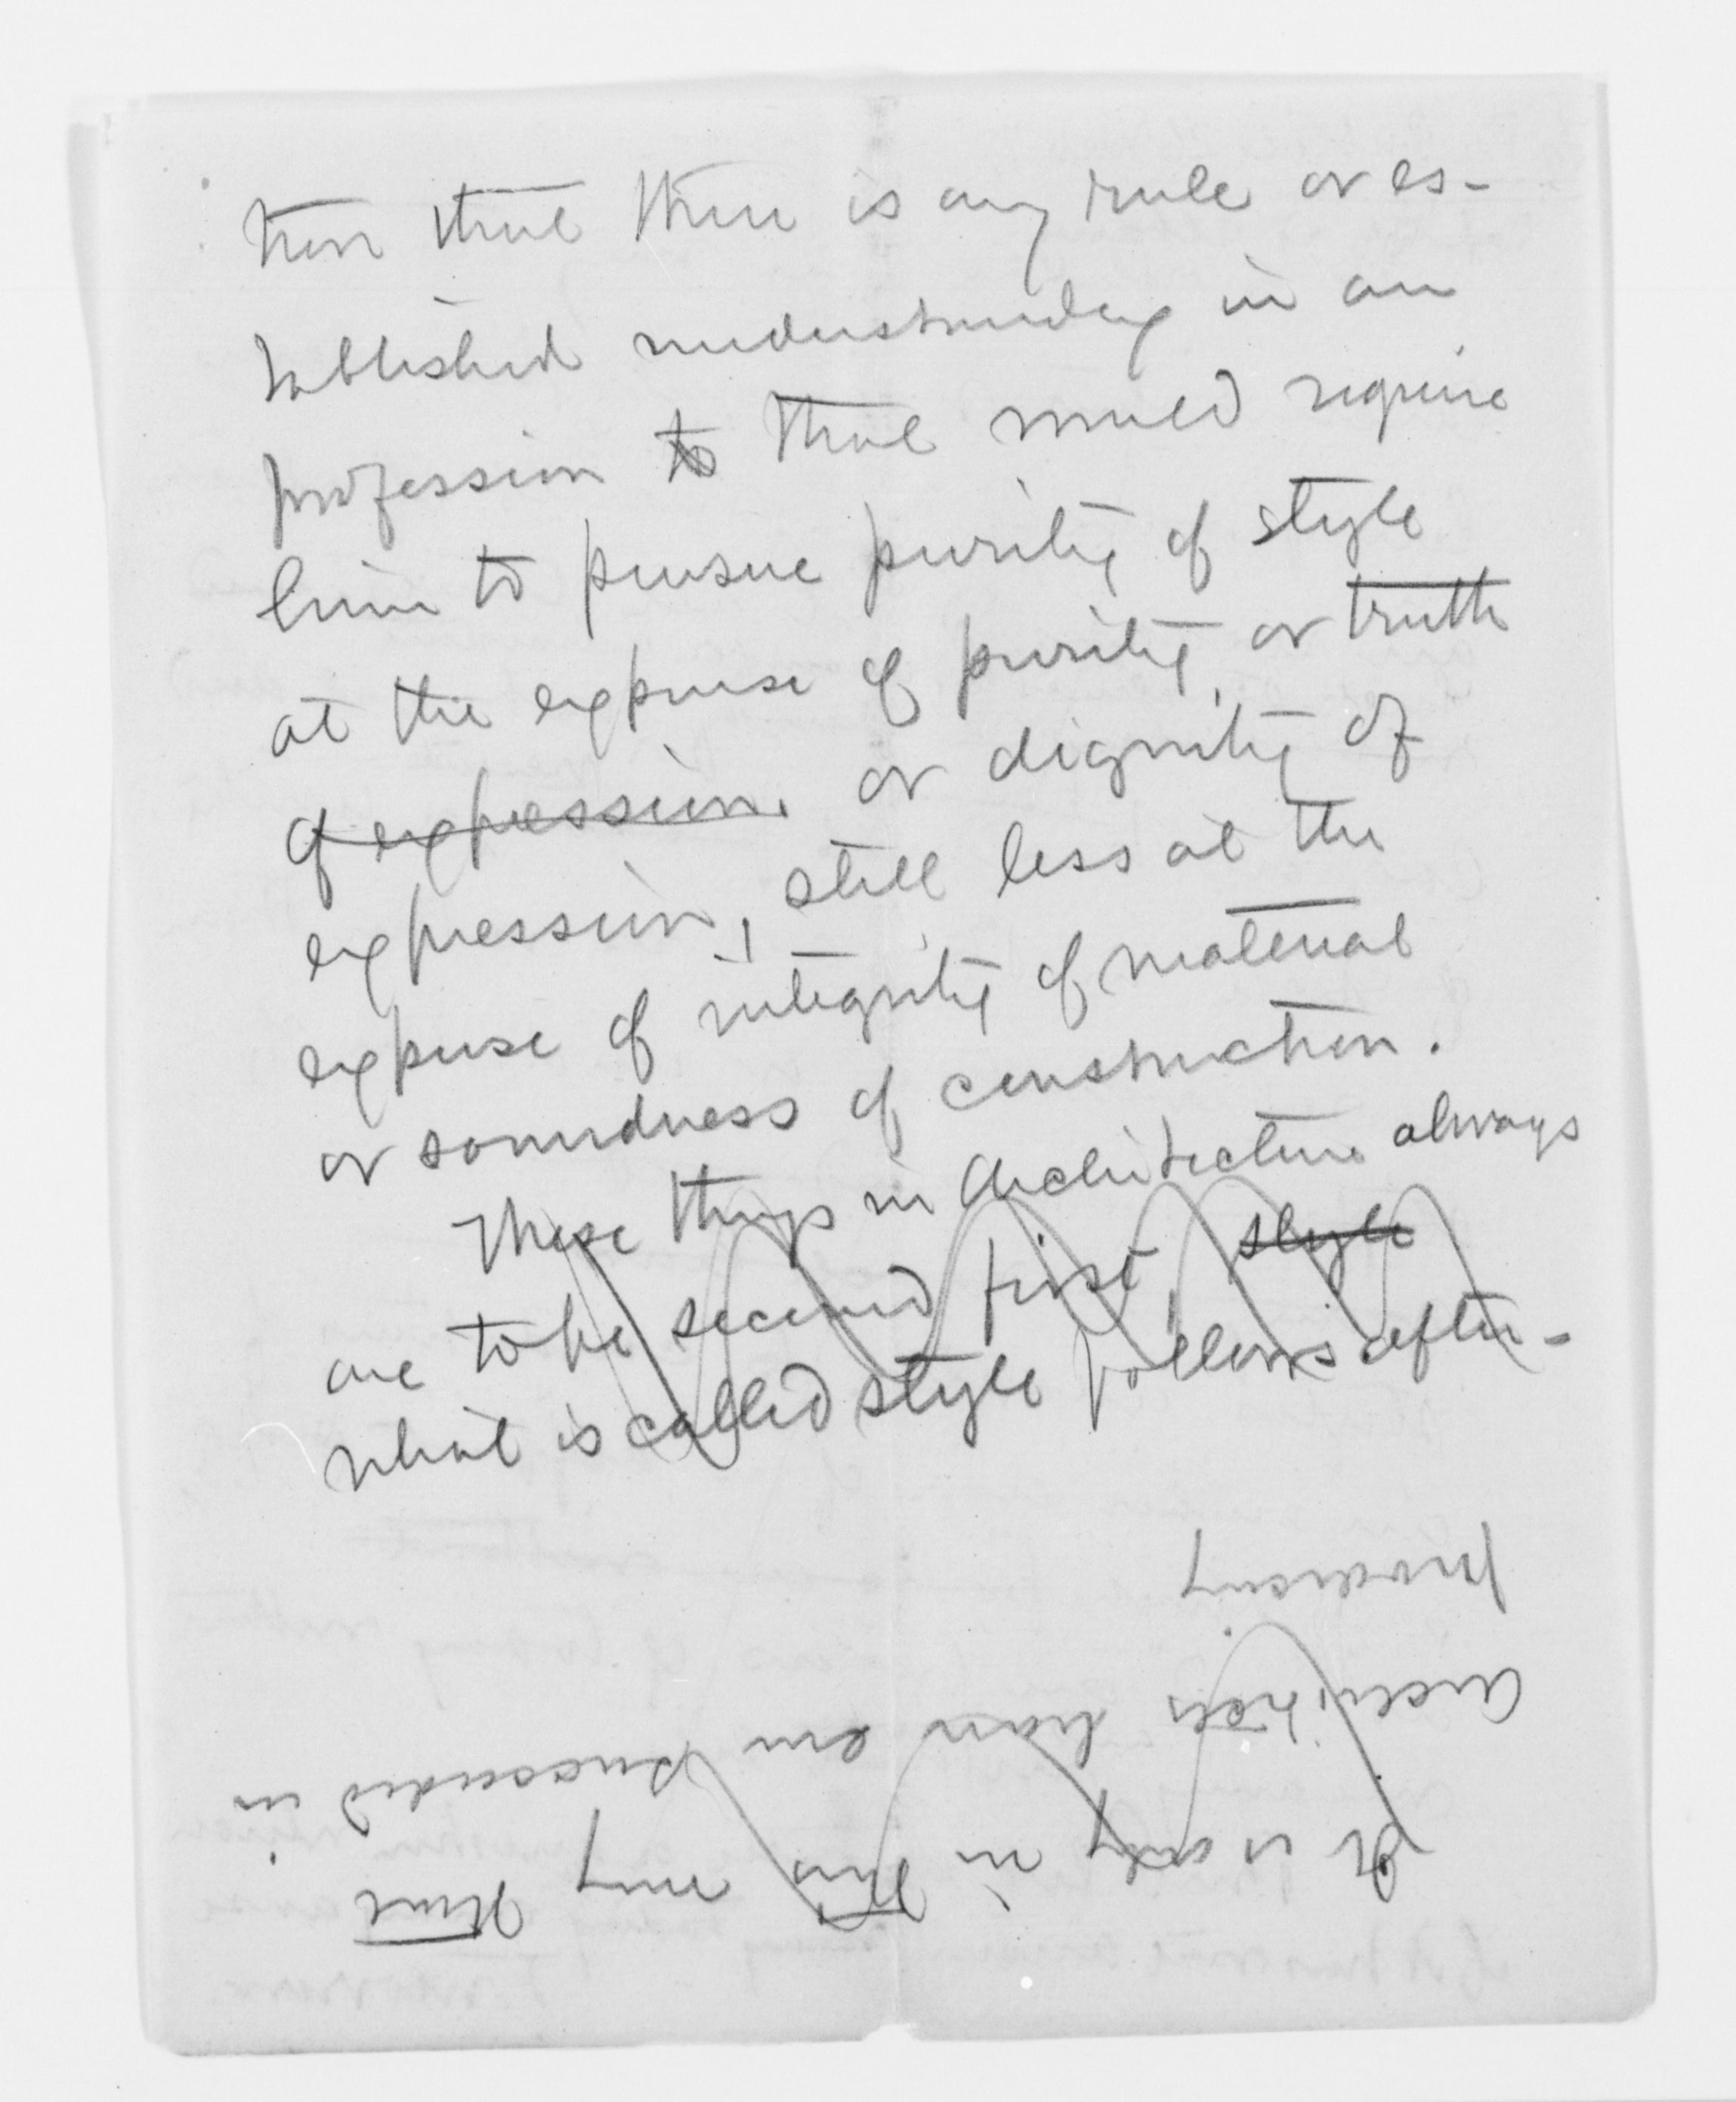 tion that there is any rule or es-
tablished understanding in our
profession to that would require
him to pursue purity of style
at the expense of purity, or truth
of expression, or dignity of
expression, still less at the
expense of integrity of material
or soundness of construction.
These things in Architecture always
are to be secured first, style
what is called style follows after-
It is only in this way that
architects have ever succeeded in
producing